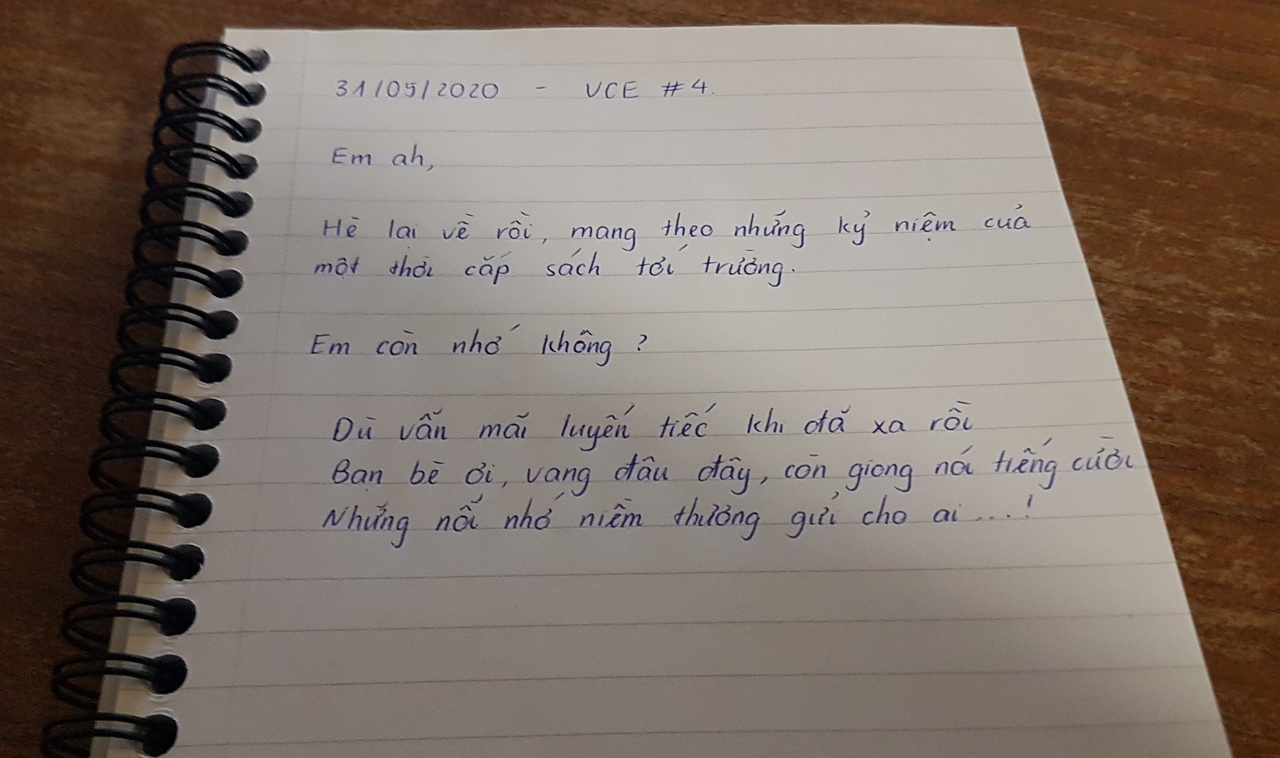 31/05/2020 - VCE #4.
Em ah,
Hè lại về rồi, mang theo những kỷ niệm của
một thời cắp sách tới trường.
Em còn nhớ không ?
Dù vẫn mãi luyến tiếc khi đã xa rồi
Bạn bè ơi, vang đâu đây, còn giọng nói tiếng cười
Những nỗi nhớ niềm thương gửi cho ai ....!